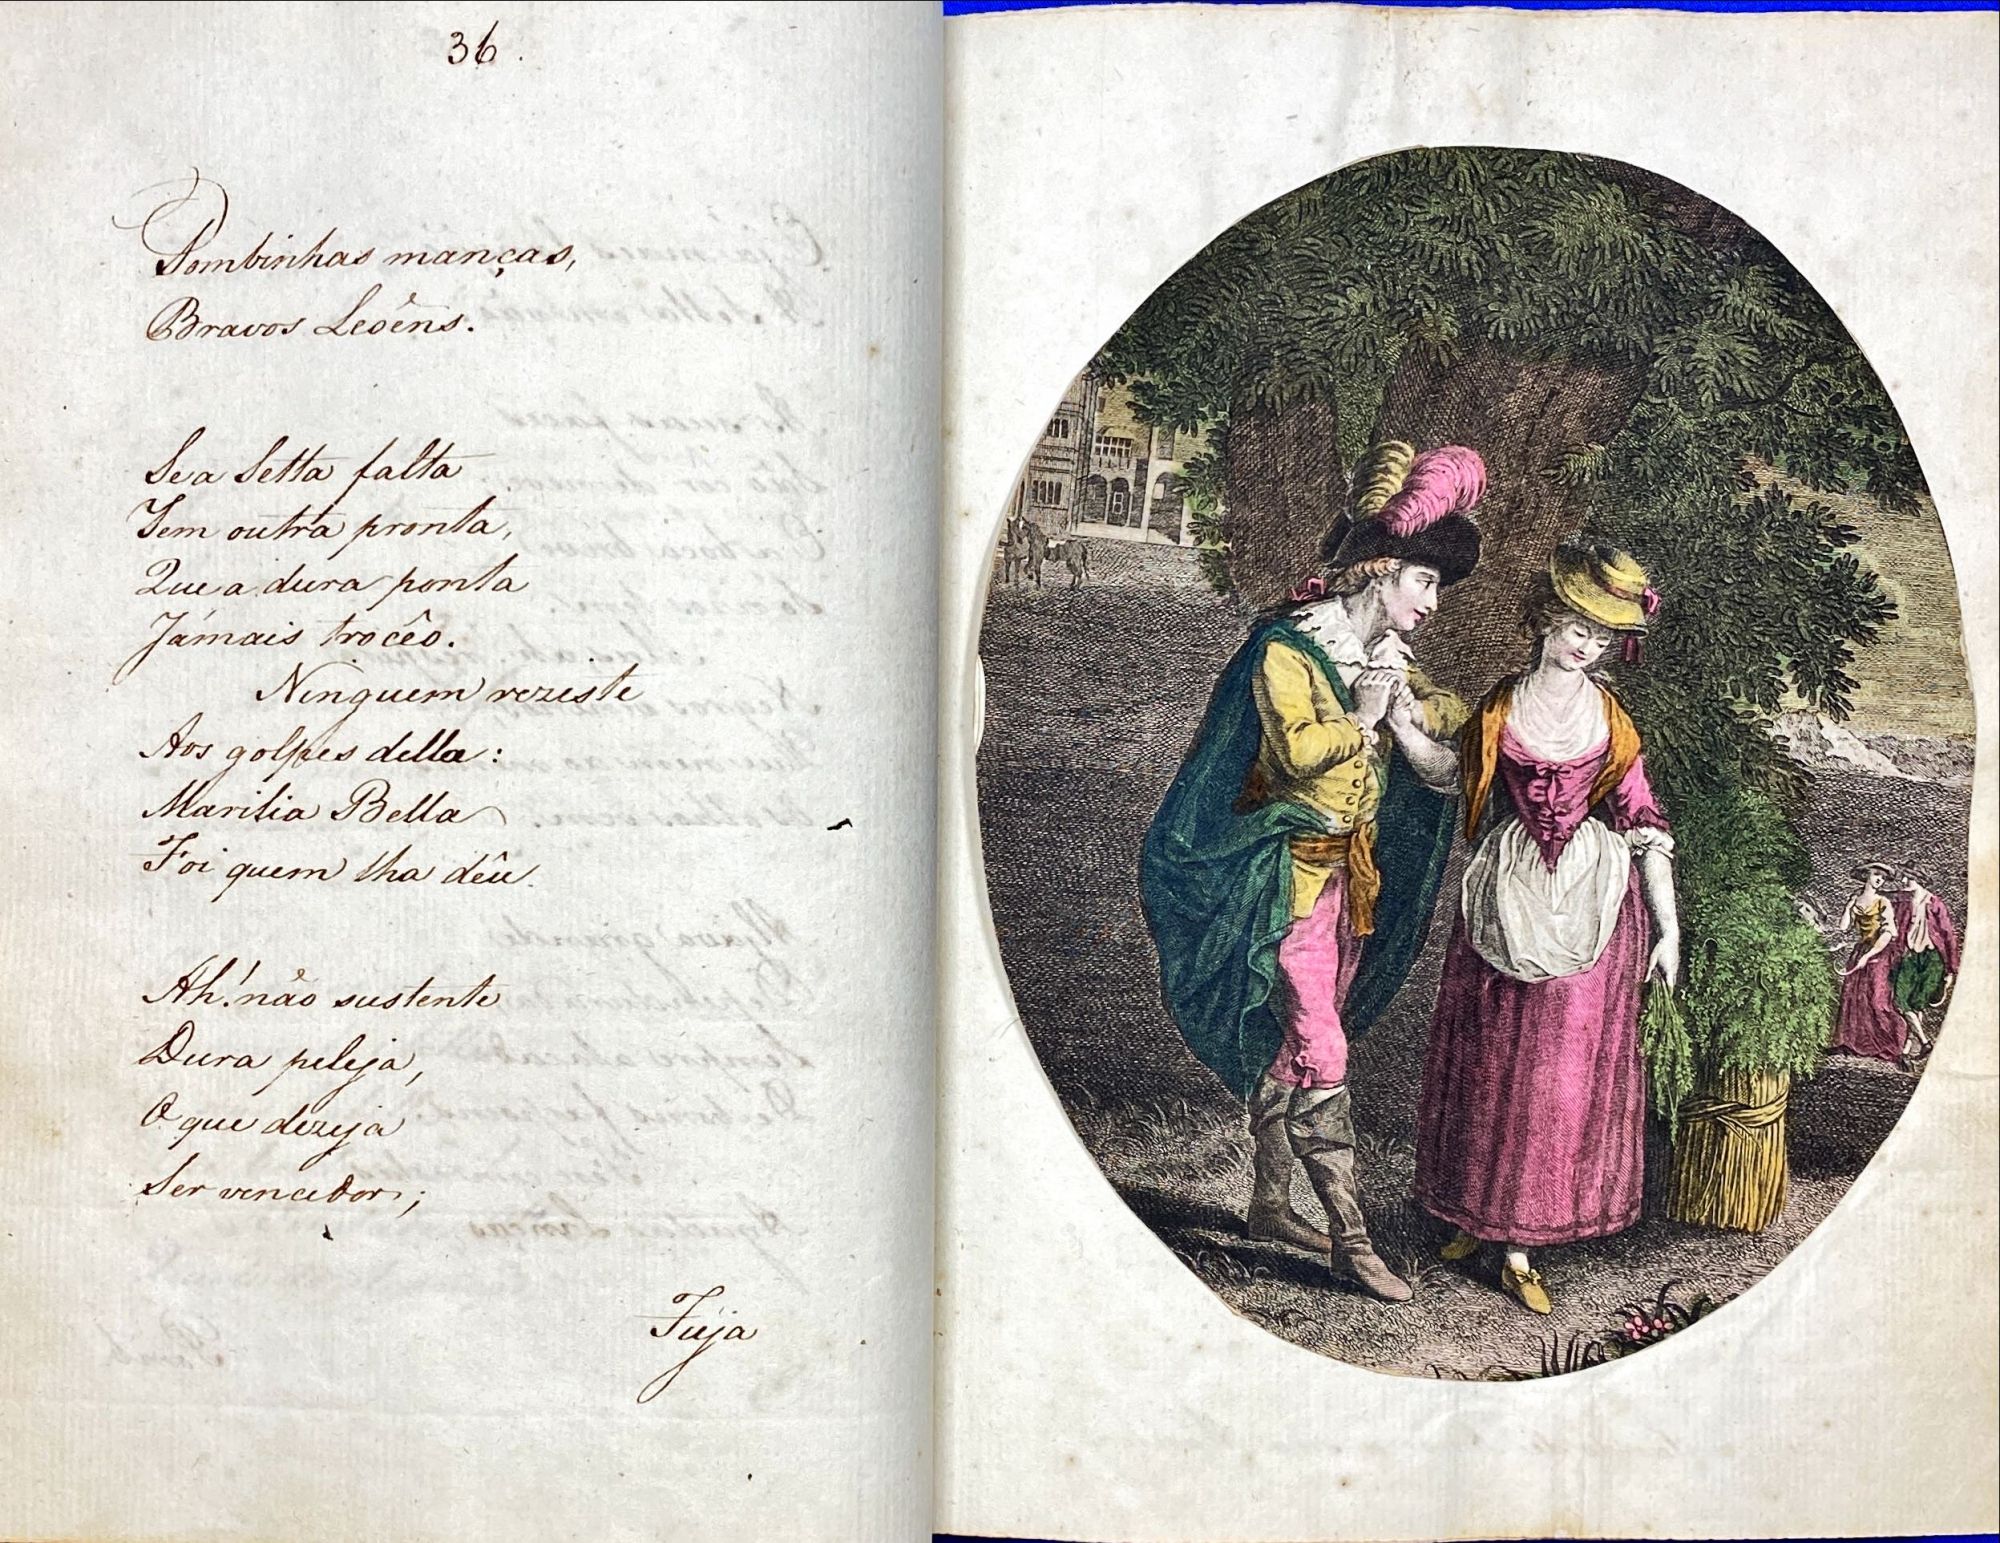 36.
Pombinhas manças,
Bravos Leôens.
Se a Setta falta
Tem outra pronta,
Que a dura ponta
Jámais trocêo.
Ninguem reziste
Aos golpes della:
Marilia Bella
Foi quem lha dêu.
Ah! não sustente
Dura peleja,
O que dezeja
Ser vencedor;
Fuja